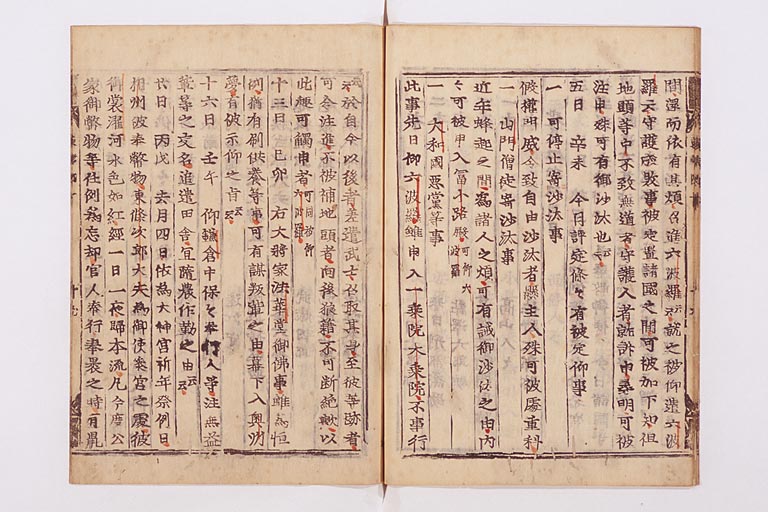 間濕而依有其煩召進六波羅就之被仰遣六波
羅云守護雖致事被定置諸國之間可被加下知但
地頭等中不致無道者守護入者就訴申尋明可被
注申殊可有御沙汰也云々
五日　辛未　今日評定條々有被定仰事
一　可停止寄沙汰事
一　山門僧徒寄沙汰事
假權門威令致自由沙汰者於主人殊可被處重科
近年蜂起之間爲諸人之煩可有誡御沙汰之由内
々可被申入冨小路殿可仰六波羅
一　大和國悪黨等事
此事先日仰六波羅雖申入一乗院大乗院不事行
云々於自今以後者差遣武士召取其身至彼等跡者
可令注進不被補地頭者向後狼藉不可断絶歟以
此趣可觸申者可同被仰六波羅
十三日　己卯　右大將家法華堂御佛事雖爲恒
例猶有刷供養等事可有謀叛輩之由幕下入奥州
夢有被示仰之旨云々
十六日　壬午　仰鎌倉中保々奉行人等注無益
輩等之交名追遣田舎宜䟽農作勤之由云々
廿日　丙戌　去月四日依爲大神宮祈年祭例日
相州被奉幣物東條次郎大夫爲御使参宮之處彼
御裳濯河水色如紅經一日一夜歸本流凡今度公
家御幣物等社例忘却官人奉行奉裹之時有鼠